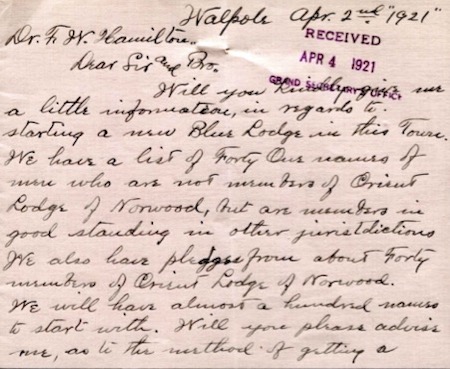 Walpole Apr. 2nd "1921"
RECEIVED
APR 4 1921
GRAND SECRETARY'S OFFICE
Dr. F. W. Hamilton.
Dear Sir and Bro.
Will you kindly give me
a little information, in regards to
starting a new Blue Lodge in this Town.
We have a list of Forty One names of
men who are not members of Orient
Lodge of Norwood, but are members in
good standing in other juristdictions
We also have pledges from about Forty
members of Orient Lodge of Norwood.
We will have almost a hundred names
to start with. Will you please advise
me, as to the method of getting a